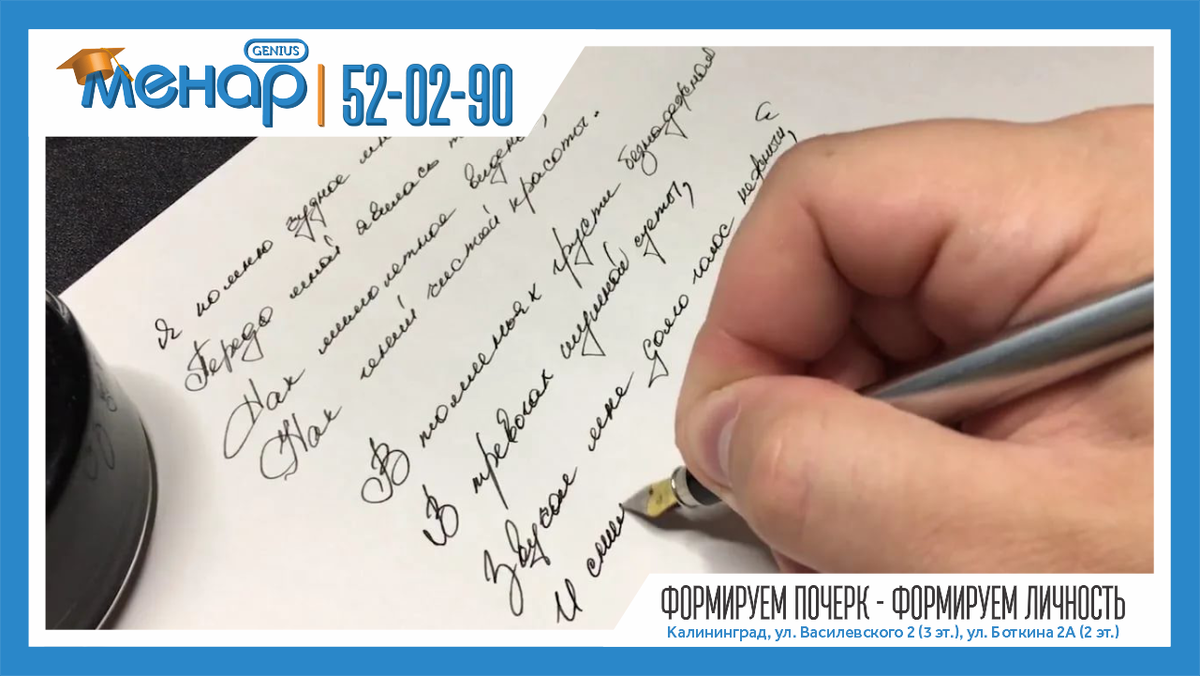 GENIUS
менар
52-02-90
Я помню чудное
Передо мной явилась
Как мимолетное виденье,
Как гений чистой красоты.
В томленьях грусти безнадежной
В тревогах шумной суеты,
Звучал мне долго голос нежный,
И сни
ФОРМИРУЕМ ПОЧЕРК - ФОРМИРУЕМ ЛИЧНОСТЬ
Калининград, ул. Василевского 2 (3 эт.), ул. Боткина 2А (2 эт.)